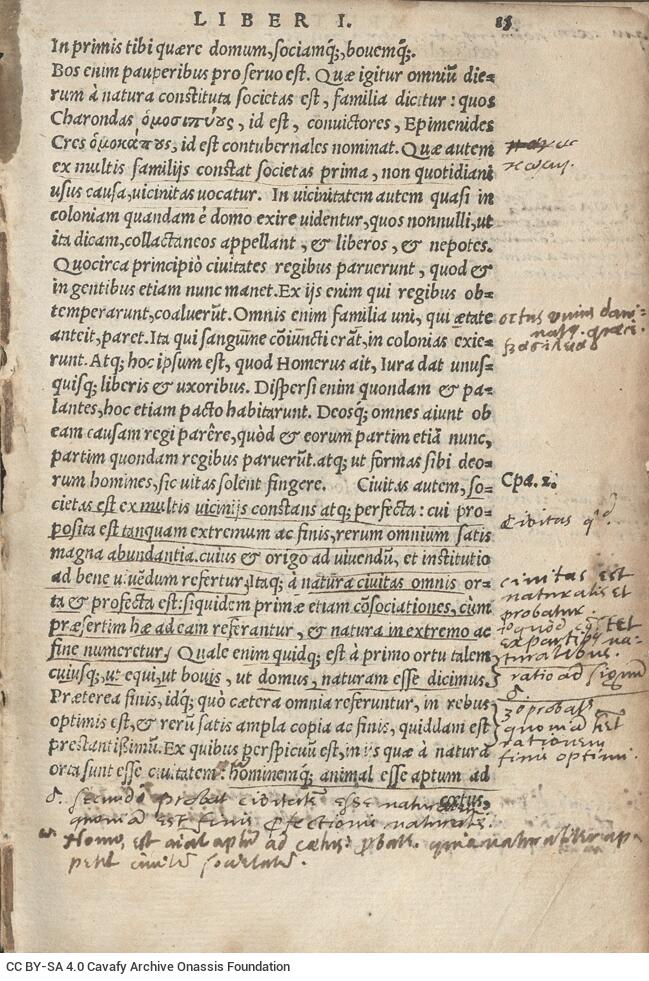 LIBER I.
In primis tibi quære domum, sociamq;, bouemq;.
Bos enim pauperibus pro seruo est. Quæ igitur omniū die=
rum à natura constituta societas est, familia dicitur: quos
Charondas ὁμοσιπύους, id est, conuictores, Epimenides
Cres ὁμοκάπους, id est contubernales nominat. Quæ autem
ex multis familijs constat societas prima, non quotidiani
usus causa, uicinitas uocatur. In uicinitatem autem quasi in
coloniam quandam è domo exire uidentur, quos nonnulli, ut
ita dicam, collactaneos appellant, & liberos, & nepotes.
Quocirca principiò ciuitates regibus paruerunt, quod &
in gentibus etiam nunc manet. Ex ijs enim qui regibus ob=
temperarunt, coaluerūt. Omnis enim familia uni, qui ætate
anteit, paret. Ita qui sanguine cōiuncti erāt, in colonias exie=
runt. Atq; hoc ipsum est, quod Homerus ait, Iura dat unus=
quisq; liberis & uxoribus. Dispersi enim quondam & pa=
lantes, hoc etiam pacto habitarunt. Deosq; omnes aiunt ob
eam causam regi parêre, quòd & eorum partim etiā nunc,
partim quondam regibus paruerūt. atq; ut formas sibi deo=
rum homines, sic uitas solent fingere. Ciuitas autem, so=
cietas est ex multis uicinijs constans atq; perfecta: cui pro=
posita est tanquam extremum ac finis, rerum omnium satis
magna abundantia. cuius & origo ad uiuendū, et institutio
ad bene uiuēdum refertur. Itaq; à natura ciuitas omnis or=
ta & profecta est: siquidem primæ etiam cōsociationes, cùm
præsertim hæ ad eam referantur, & natura in extremo ac
fine numeretur. Quale enim quidq; est à primo ortu talem
cuiusq;, ut equi, ut bouis, ut domus, naturam esse dicimus.
Præterea finis, idq; quò cætera omnia referuntur, in rebus
optimis est, & rerū satis ampla copia ac finis, quiddam est
prestantißimū. Ex quibus perspicuū est, in ijs quæ à natura
orta sunt esse ciuitatem: hominemq; animal esse aptum ad
cœtus,
Cpa. 2.
Civitas
civitas est
naturalis et
probatur.
ex partibus na=
turalibus.
ratio ad
quoniam
rationem
finis optimi.
probat civitatem esse naturalem
quoniam est finis naturalis.
Homo est ad cœtus quia naturaliter ap
petit societatem.
CC BY-SA 4.0 Cavafy Archive Onassis Foundation